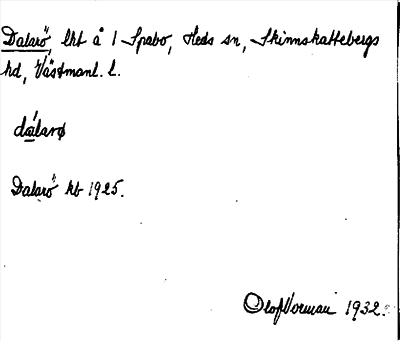 Dalarö, lht å 1 Spabo, Heds sn, Skinnskattebergs
hd, Västmanl. l.
dálarø
Dalarö kb 1925.
Olof Vorman 1932.